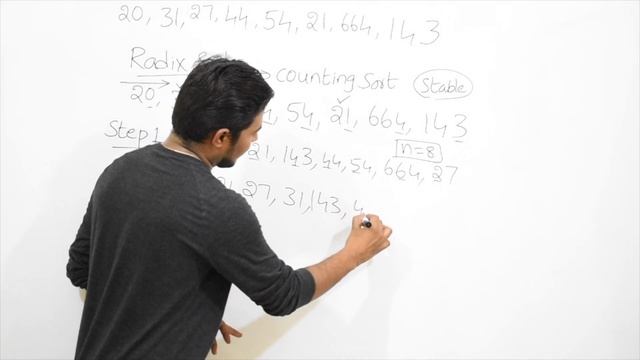 20, 31, 27, 44, 54, 21, 664, 143
Radix Counting Sort Stable
20, 54, 21, 664, 143
n=8
Step 1 21, 143, 44, 54, 664, 27
27, 31, 143, 4